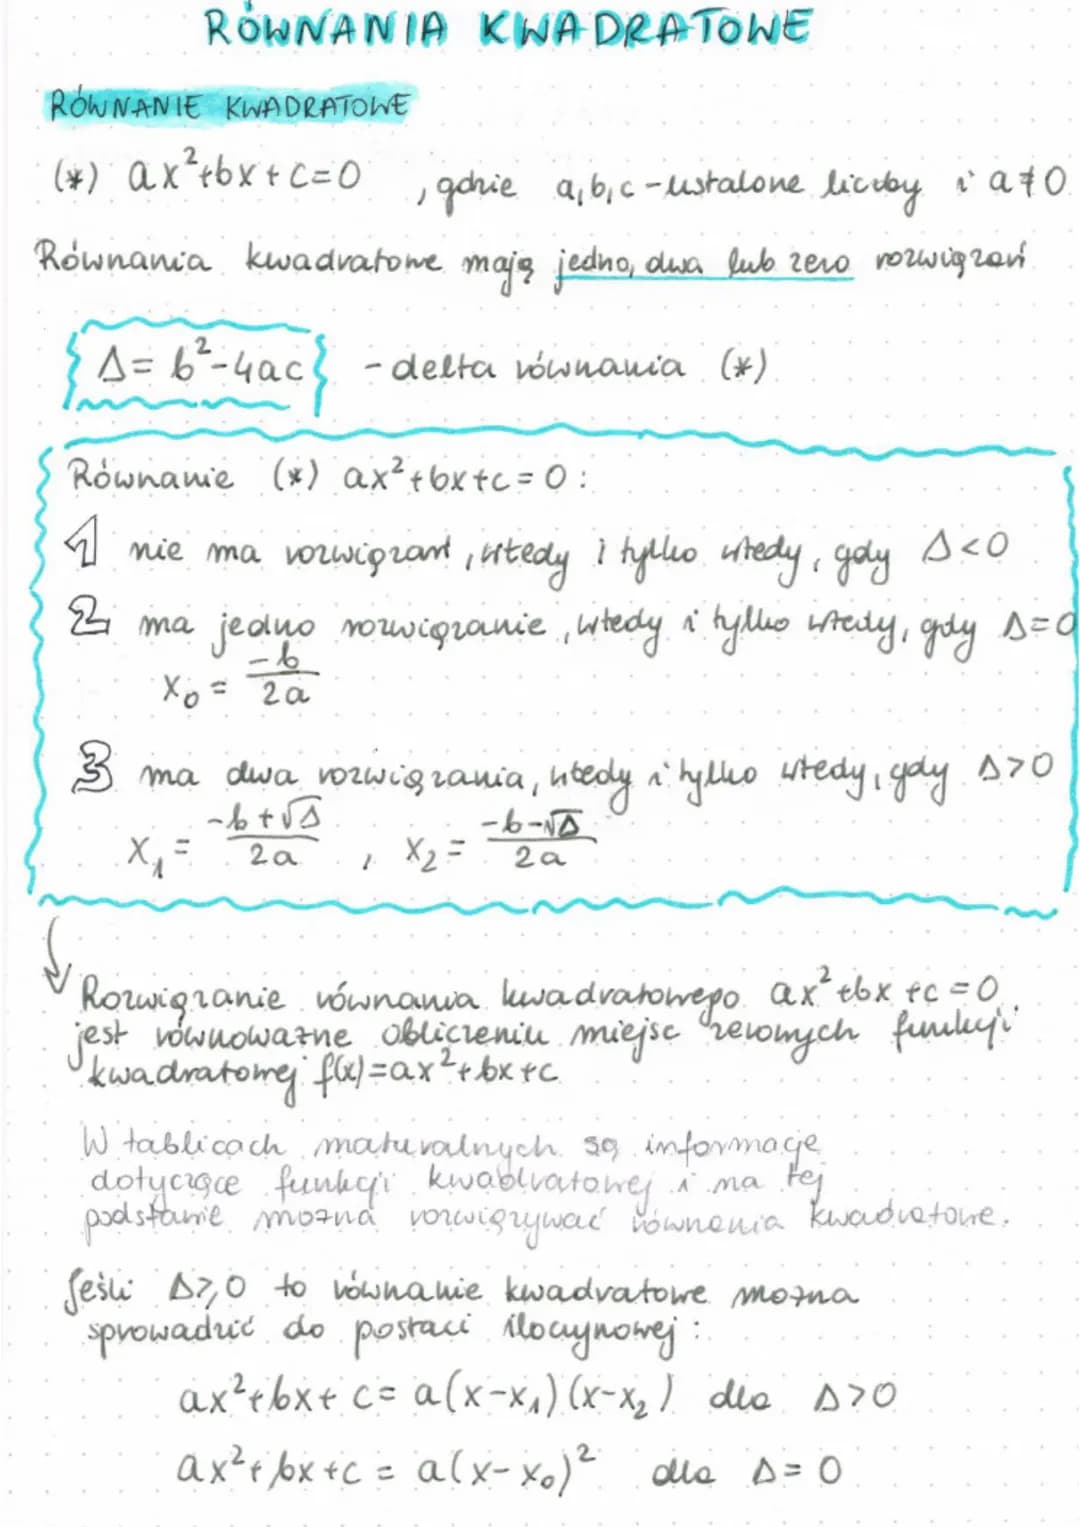 RÓWNANIA KWADRATOWE
RÓWNANIE KWADRATOWE
(*) ax²+bx+c=0 , gdzie a,b,c - ustalone liczby i a≠0
Równania kwadratowe mają jedno, dwa lub zero rozwiązań
Δ= b²-4ac - delta równania (*)
Równanie (*) ax²+bx+c=0:
1 nie ma rozwiązań, wtedy i tylko wtedy, gdy Δ<0
2 ma jedno rozwiązanie, wtedy i tylko wtedy, gdy Δ=0
x₀ = -b/2a
3 ma dwa rozwiązania, wtedy i tylko wtedy, gdy Δ>0
x₁ = -b+√Δ/2a , x₂ = -b-√Δ/2a
Rozwiązanie równania kwadratowego ax²+bx+c=0
jest równoważne obliczeniu miejsc zerowych funkcji
kwadratowej f(x)=ax²+bx+c
W tablicach maturalnych są informacje
dotyczące funkcji kwadratowej i na tej
podstawie można rozwiązywać równania kwadratowe.
Jeśli Δ≥0 to równanie kwadratowe można
sprowadzić do postaci iloczynowej:
ax²+bx+c= a(x-x₁)(x-x₂) dla Δ>0
ax²+bx+c = a(x-x₀)² dla Δ=0